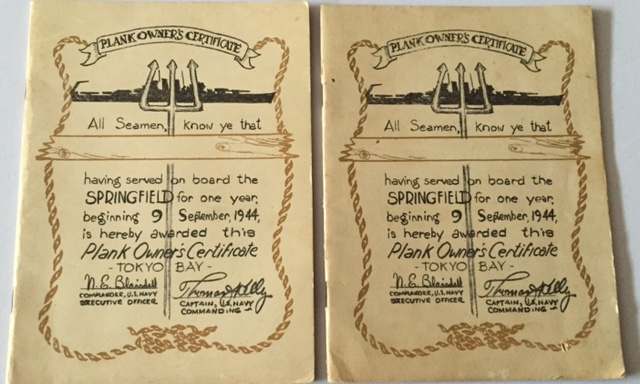 PLANK OWNER'S CERTIFICATE
All Seamen, know ye that
having served on board the
SPRINGFIELD for one year,
beginning 9 September, 1944,
is hereby awarded this
Plank Owner's Certificate
- TOKYO BAY -
N. E. Blaisdell
COMMANDER, U.S. NAVY
EXECUTIVE OFFICER
Thomas Kelly
CAPTAIN, U.S. NAVY
COMMANDING
PLANK OWNER'S CERTIFICATE
All Seamen, know ye that
having served on board the
SPRINGFIELD for one year,
beginning 9 September, 1944,
is hereby awarded this
Plank Owner's Certificate
- TOKYO BAY -
N. E. Blaisdell
COMMANDER, U.S. NAVY
EXECUTIVE OFFICER
Thomas Kelly
CAPTAIN, U.S. NAVY
COMMANDING